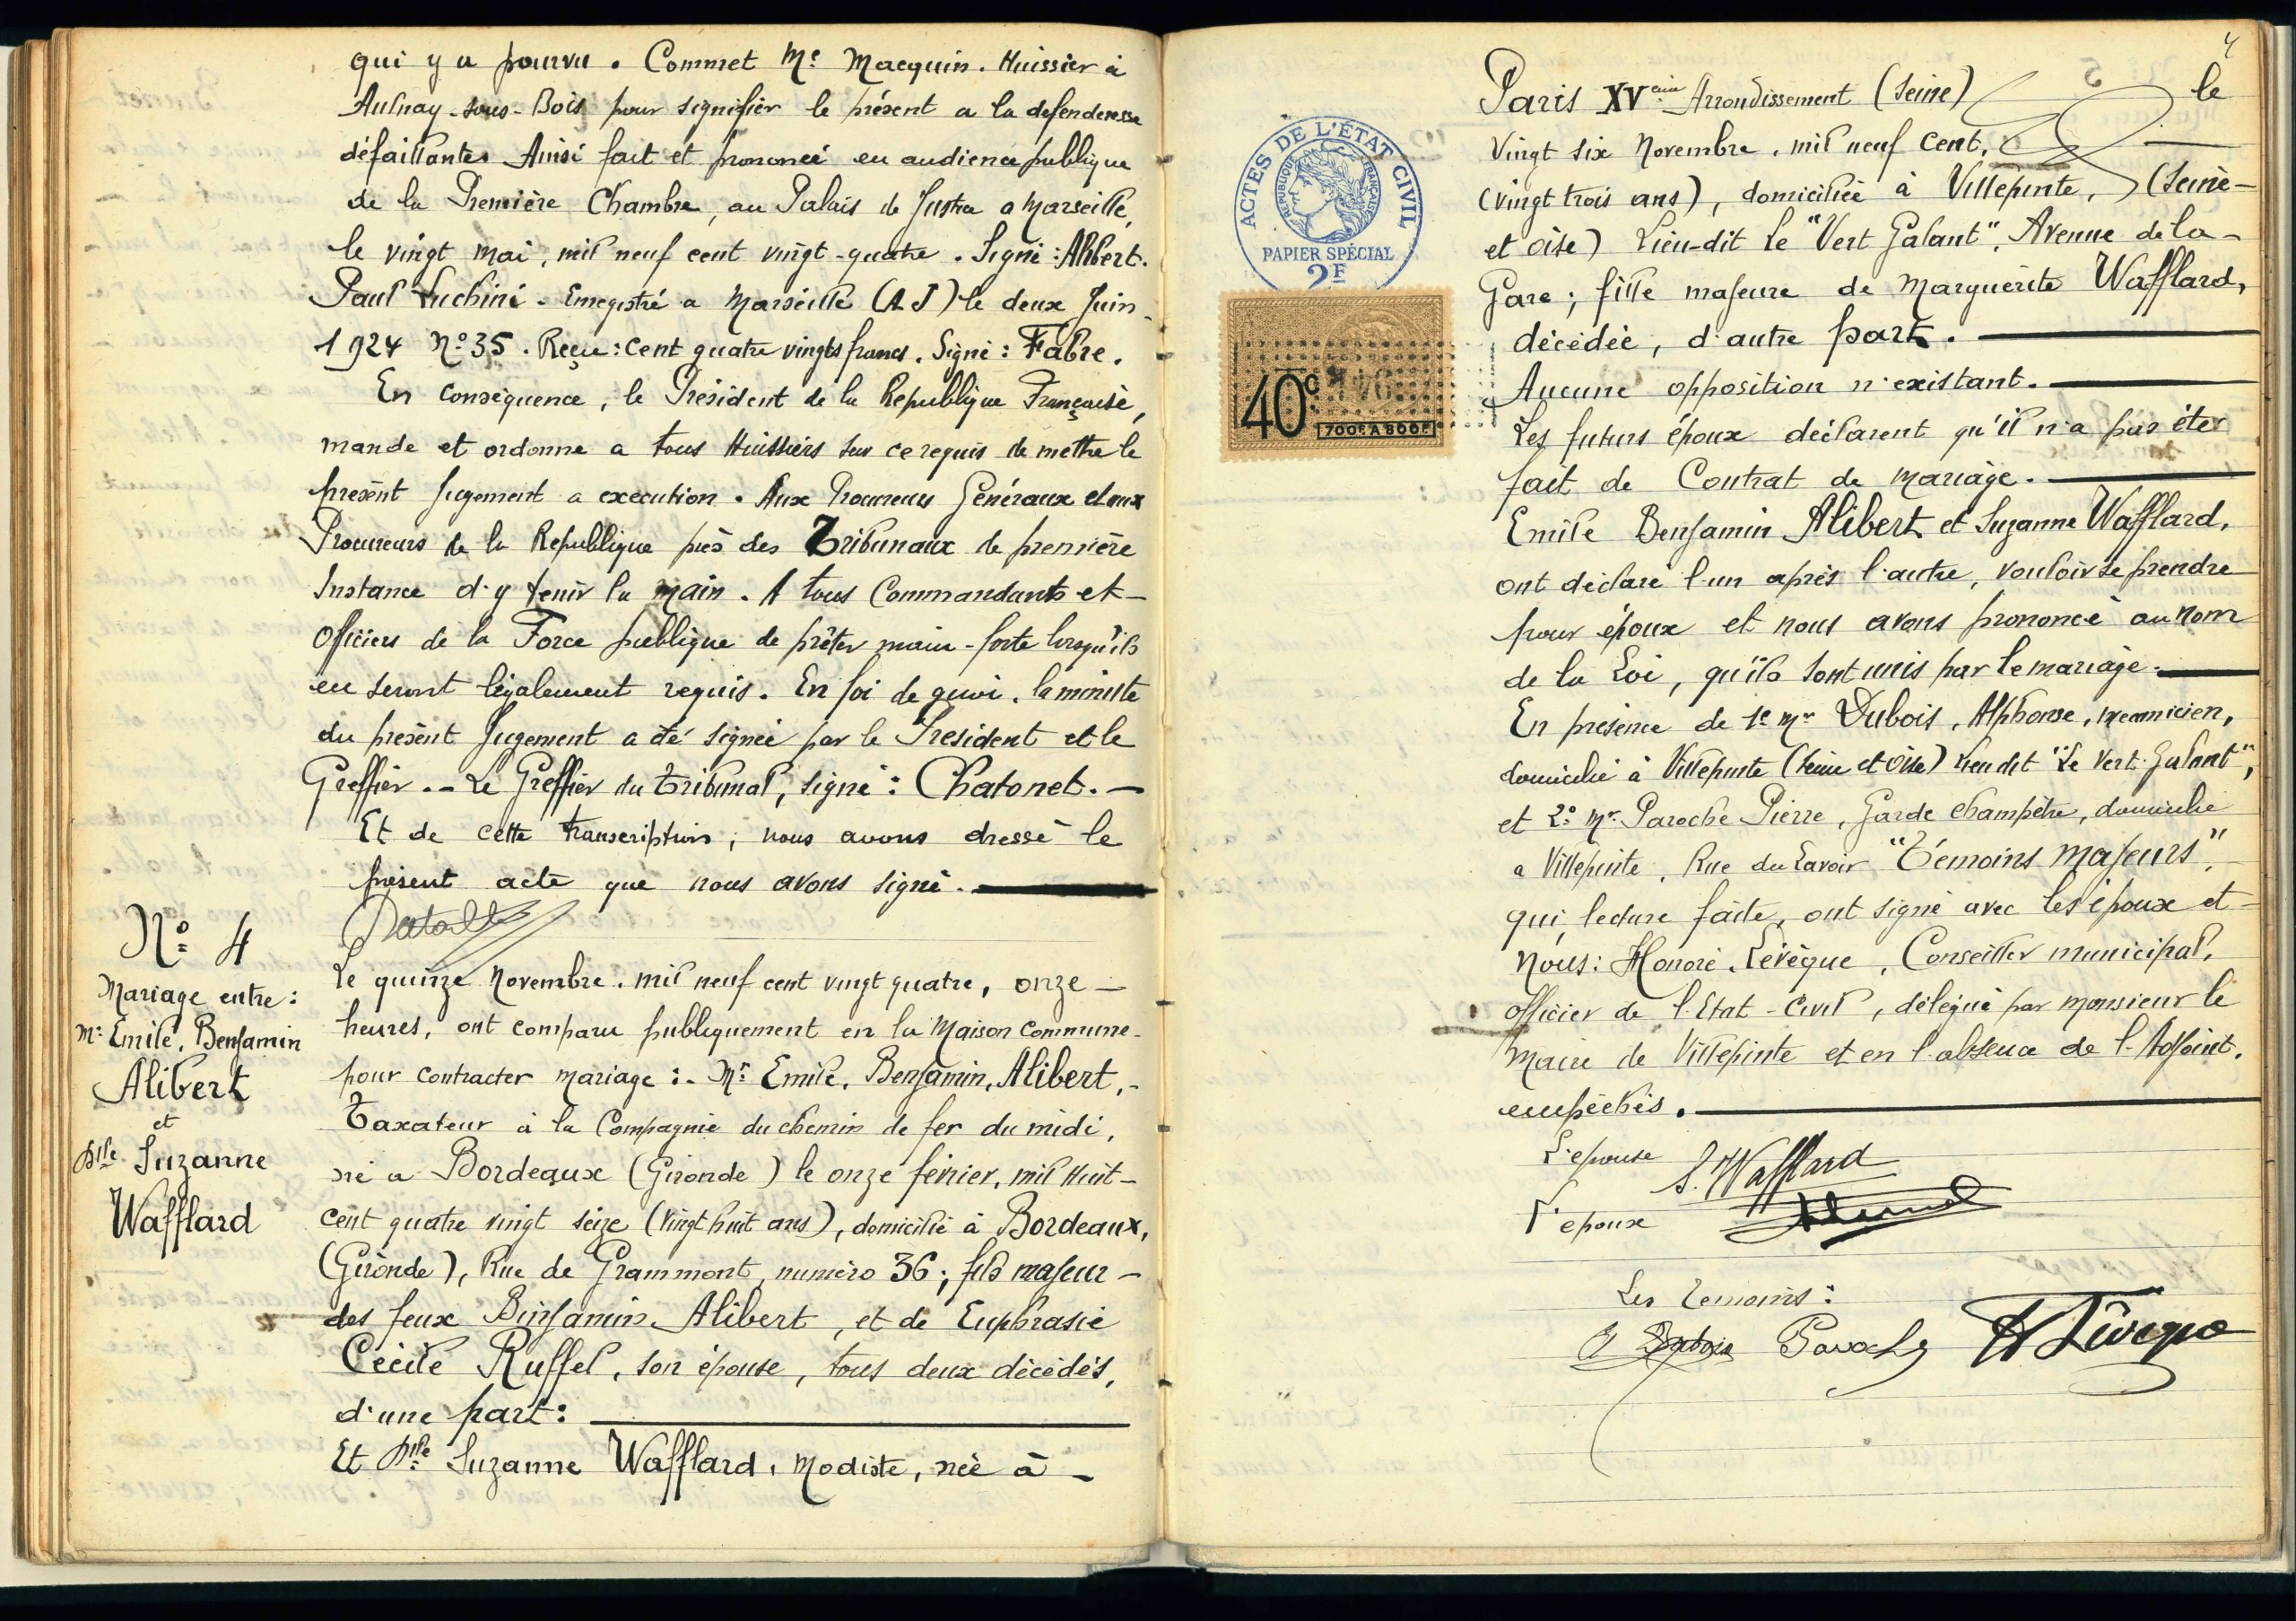 qui y a pourvu. Commet Me Macquin. Huissier à
Aulnay-sous-Bois pour signifier le présent a la defenderesse
défaillante. Ainsi fait et prononcé en audience publique
de la Première Chambre, au Palais de Justice a Marseille,
le vingt mai, mil neuf cent vingt-quatre. Signé: Alibert.
Paul Luchini - Enregistré a Marseille (AJ) le deux Juin
1924 No 35. Reçu: Cent quatre vingts francs. Signé: Fabre.
En conséquence, le Président de la Republique Française,
mande et ordonne a tous Huissiers sur ce requis de mettre le
présent jugement a execution. Aux Procureurs Généraux et aux
Procureurs de la Republique près des Tribunaux de première
Instance d'y tenir la main. A tous Commandants et -
Officiers de la Force publique de prêter main-forte lorsqu'ils
en seront légalement requis. En foi de quoi, la minute
du présent Jugement a été signée par le President et le
Greffier. - Le Greffier du tribunal, signé: Chatonet. -
Et de cette transcription, nous avons dressé le
présent acte que nous avons signé.
No 4
Mariage entre:
Mr Emile, Benjamin
Alibert
et
Dlle Suzanne
Wafflard
Le quinze Novembre. mil neuf cent vingt quatre, onze -
heures, ont comparu publiquement en la Maison Commune -
pour contracter mariage: - Mr Emile, Benjamin, Alibert, -
Taxateur à la Compagnie du chemin de fer du midi,
né a Bordeaux (Gironde) le onze février, mil huit -
cent quatre vingt seize (vingt huit ans), domicilié à Bordeaux,
(Gironde), Rue de Grammont, numéro 36; fils majeur -
des feux Binjamin Alibert, et de Euphrasie
Cécile Ruffel, son épouse, tous deux décédés,
d'une part:
Et Dlle Suzanne Wafflard, Modiste, née à -
4
Paris XVeme Arrondissement (Seine) le
Vingt six Novembre, mil neuf cent,
(vingt trois ans), domiciliée à Villepinte, (Seine -
et oise) Lieu-dit le "Vert Galant", Avenue de la -
Gare; fille majeure de Marguerite Wafflard,
décédée, d'autre part.
Aucune opposition n'existant.
Les futurs époux déclarent qu'il n'a pas éter
fait de Contrat de mariage.
Emile Benjamin Alibert et Suzanne Wafflard,
ont déclaré l'un après l'autre, vouloir se prendre
pour époux et nous avons prononcé au nom
de la Loi, qu'ils sont unis par le mariage.
En présence de 1e Mr Dubois, Alphonse, mecanicien,
domicilié à Villepinte (Seine et Oise) lieu dit "Le Vert Galant",
et 2o Mr Paroche Pierre, Garde champêtre, domicilié
a Villepinte, Rue du Lavoir "Témoins majeurs",
qui, lecture faite, ont signé avec les époux et -
Nous: Honoré. Lévêque, Conseiller municipal,
officier de l'Etat-Civil, délégué par Monsieur le
Maire de Villepinte et en l'absence de l'Adjoint,
empéchés.
L'epouse S. Wafflard
L'epoux
Les temoins:
Dubois Paroche H Lévêque
ACTES DE L'ÉTAT CIVIL
RÉPUBLIQUE FRANÇAISE
PAPIER SPÉCIAL
2F
40c
700F A 800F